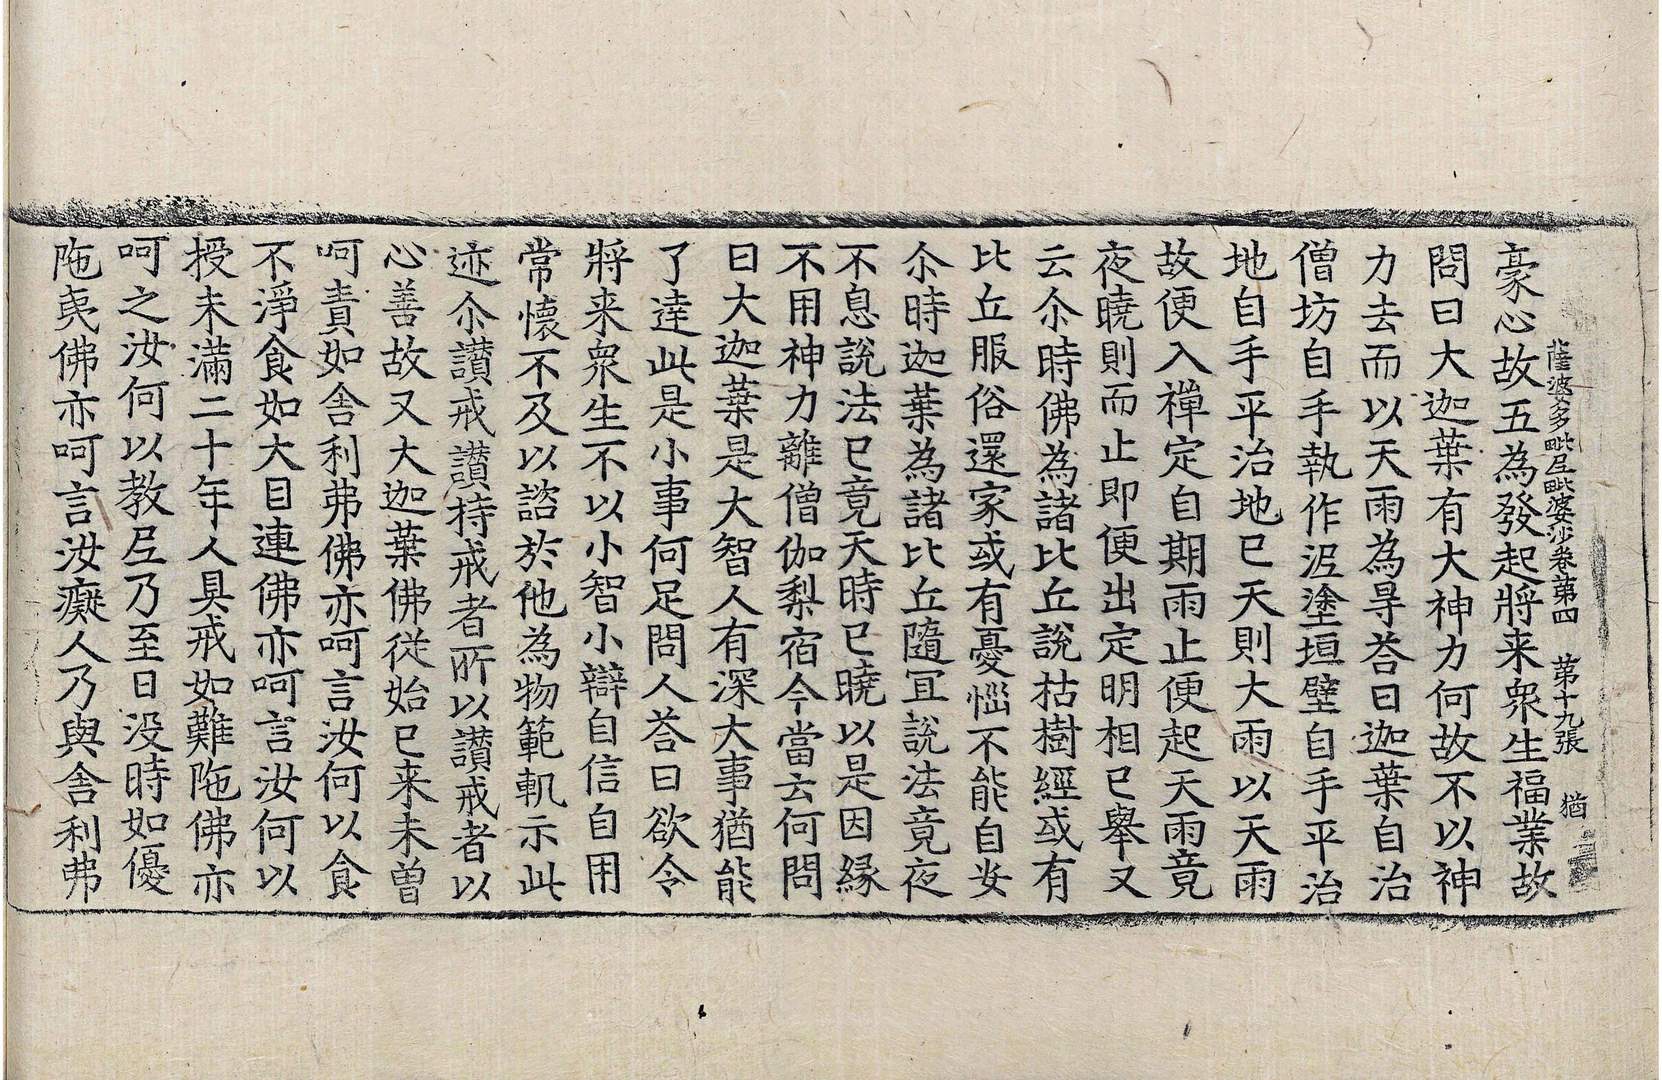 薩婆多毗𡰱毗婆沙卷第四　第十九張　猶
豪心故五為發起將来衆生福業故
問曰大迦葉有大神力何故不以神
力去而以天雨為㝵荅曰迦葉自治
僧坊自手執作泥塗垣壁自手平治
地自手平治地已天則大雨以天雨
故便入禪定自期雨止便起天雨竟
夜曉則而止即便出定明相已舉又
云尒時佛為諸比丘說枯樹經或有
比丘服俗還家或有憂惱不能自安
尒時迦葉為諸比丘隨冝說法竟夜
不息說法已竟天時已曉以是因緣
不用神力離僧伽梨宿今當云何問
曰大迦葉是大智人有深大事猶能
了達此是小事何足問人荅曰欲令
將来衆生不以小智小辯自信自用
常懷不及以諮於他為物範軌示此
迹尒讃戒讃持戒者所以讃戒者以
心善故又大迦葉佛從始已来未曾
呵責如舍利弗佛亦呵言汝何以食
不淨食如大目連佛亦呵言汝何以
授未滿二十年人具戒如難陁佛亦
呵之汝何以教𡰱乃至日没時如優
陁夷佛亦呵言汝癡人乃與舍利弗